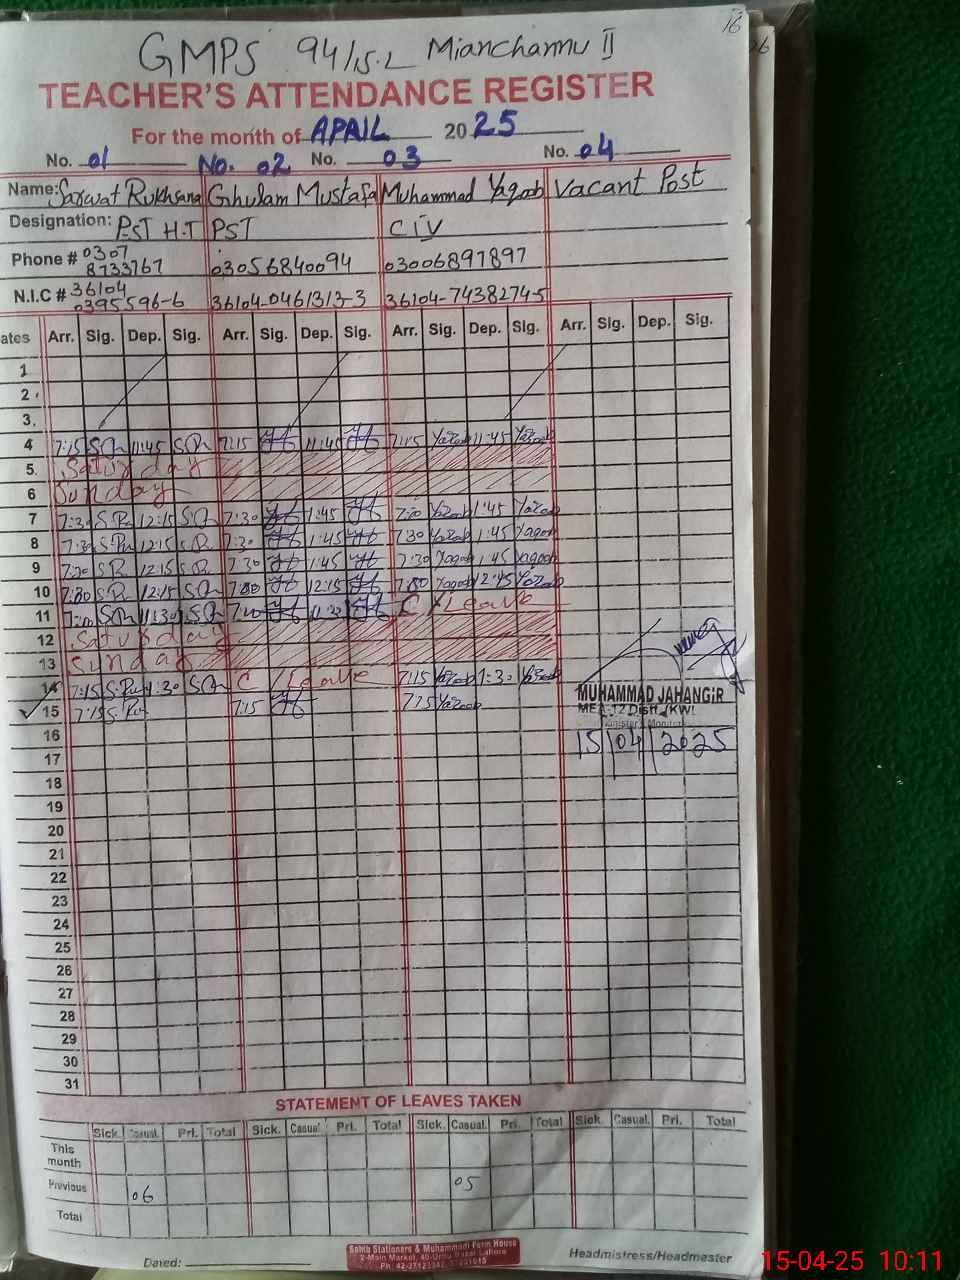 16
GMPS 94/15.L Mianchannu II
TEACHER'S ATTENDANCE REGISTER
For the month of APAIL 2025
No. 01 No. 02 No. 03 No. 04
Name: Sarwat Rukhsana Ghulam Mustafa Muhammad Yaqoob Vacant Post
Designation: PST H.T PST CIV
Phone # 0307 8733767 03056840094 03006897897
N.I.C # 36104 0395596-6 36104-0461313-3 36104-74382745
ates Arr. Sig. Dep. Sig. Arr. Sig. Dep. Sig. Arr. Sig. Dep. Sig. Arr. Sig. Dep. Sig.
1
2
3.
4 7:15 11:45 7:15 11:45 7:15 Yaqoob 11:45 Yaqoob
5. Saturday
6 Sunday
7 7:30 12:15 7:30 1:45 7:30 Yaqoob 1:45 Yaqoob
8 7:30 12:15 7:30 1:45 7:30 Yaqoob 1:45 Yaqoob
9 7:30 12:15 7:30 1:45 7:30 Yaqoob 1:45 Yaqoob
10 12:15 12:15 Yaqoob 12:45 Yaqoob
11 11:30 11:30 C/Leave
12 Saturday
13 Sunday
14 7:15 1:30 C/Leave 7:15 Yaqoob 1:30 Yaqoob
15 7:15 7:15 Yaqoob
MUHAMMAD JAHANGIR
15/04/2025
16
17
18
19
20
21
22
23
24
25
26
27
28
29
30
31
STATEMENT OF LEAVES TAKEN
Sick. Casual. Pri. Total Sick. Casual. Pri. Total Sick. Casual. Pri. Total Sick. Casual. Pri. Total
This month
Previous 06 05
Total
Sahib Stationers & Muhammadi Form House
2-Main Market, 40-Urdu Bazar Lahore
Dated: Headmistress/Headmaster
15-04-25 10:11